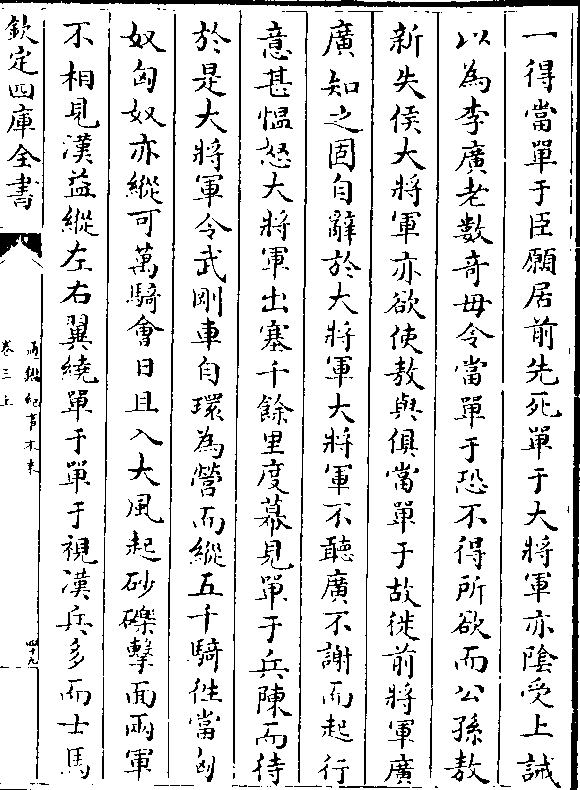 一得當單于臣願居前先死單于大將軍亦隂受上誡
以為李廣老數竒毋令當單于恐不得所欲而公孫敖
新失侯大將軍亦欲使敖與俱當單于故徙前將軍廣
廣知之固自辭於大將軍大將軍不聽廣不謝而起行
意甚愠怒大將軍出塞千餘里度幕見單于兵陳而待
於是大將軍令武剛車自環為營而縱五千騎徃當匈
奴匈奴亦縱可萬騎會日且入大風起砂礫擊面兩軍
不相見漢益縱左右翼繞單于單于視漢兵多而士馬
欽定四庫全書
通鑑紀事本末
卷三上
四十九